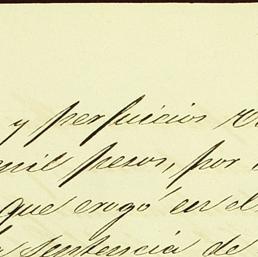 y perjuicios
mil pesos, por
que erogó en el
sentencia de